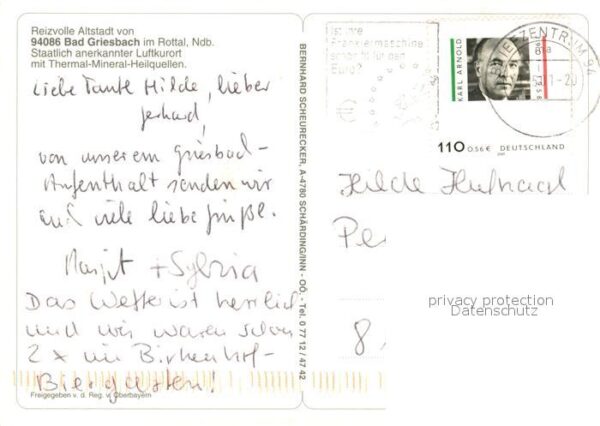 Reizvolle Altstadt von
94086 Bad Griesbach im Rottal, Ndb.
Staatlich anerkannter Luftkurort
mit Thermal-Mineral-Heilquellen.
Liebe Tante Hilde, lieber
Gerhard,
von unserem Griesbad-
Aufenthalt senden wir
auch viele liebe Grüße.
Margit + Sylvia
Das Wetter ist herrlich
und wir waren schon
2 x im Birkenhof-
Biergarten!
Freigegeben v. d. Reg. v. Oberbayern
BERNHARD SCHEURECKER, A-4780 SCHÄRDING/INN - OÖ. - Tel. 0 77 12 / 47 42
Ist Ihre
Frankiermaschine
schon fit für den
Euro?
BRIEFZENTRUM 94
KARL ARNOLD
110 0,56€ DEUTSCHLAND
Hilde
Pe
8
privacy protection
Datenschutz